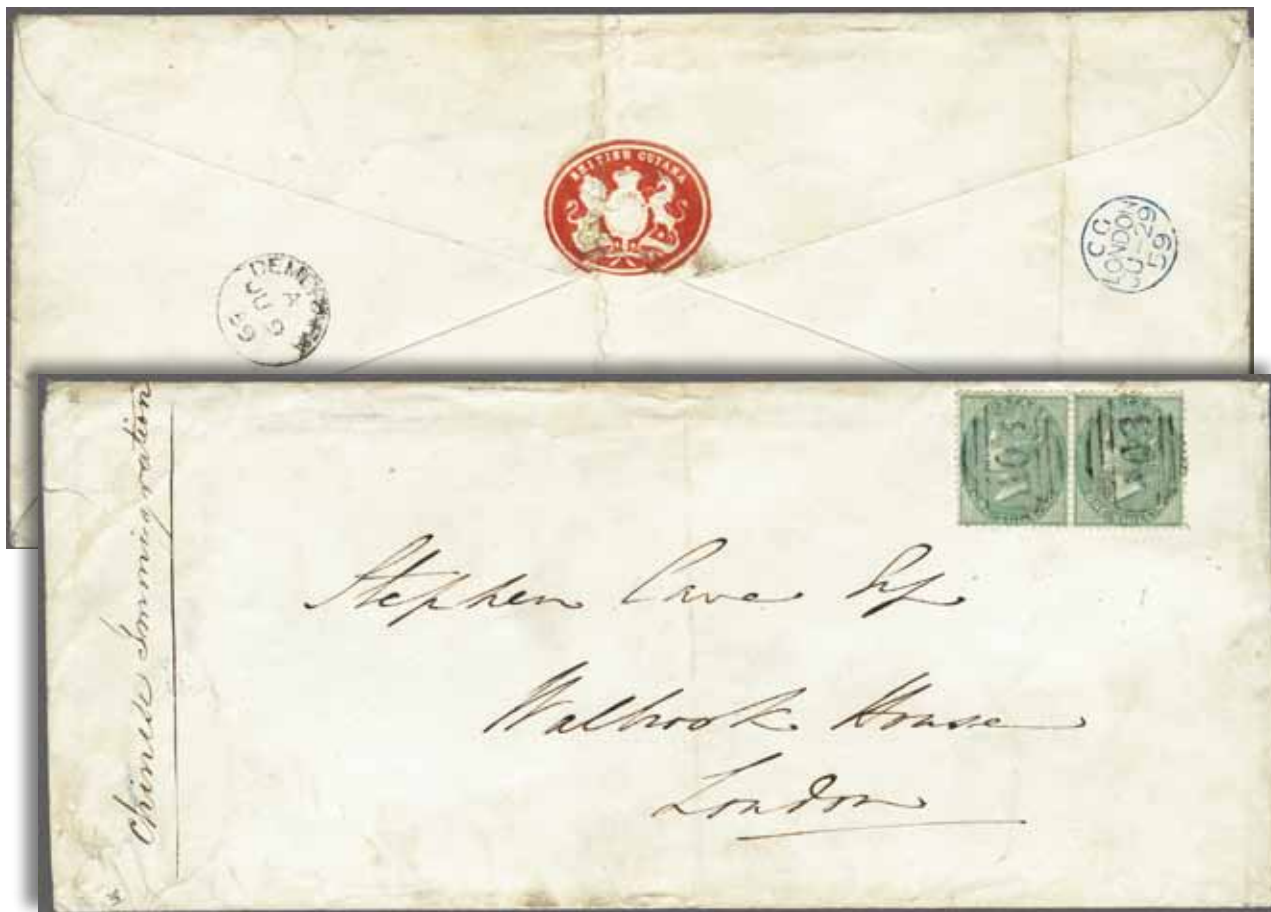 BRITISH GUIANA
DEMERARA
A
JU 9
59
CC
LONDON
JU-29
59
Chinese Immigration
A03
A03
Stephen Cave Esq
Walbrook House
London